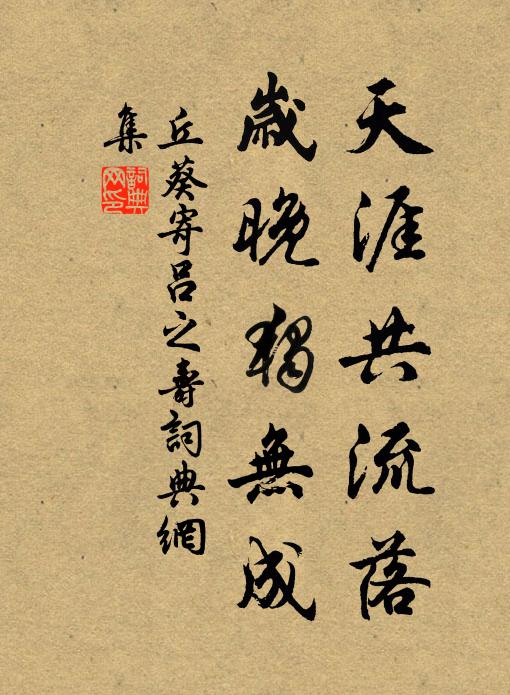 天涯共流落
歲晚獨無成
丘葵寄呂之壽詞典網
集
詞典
网印